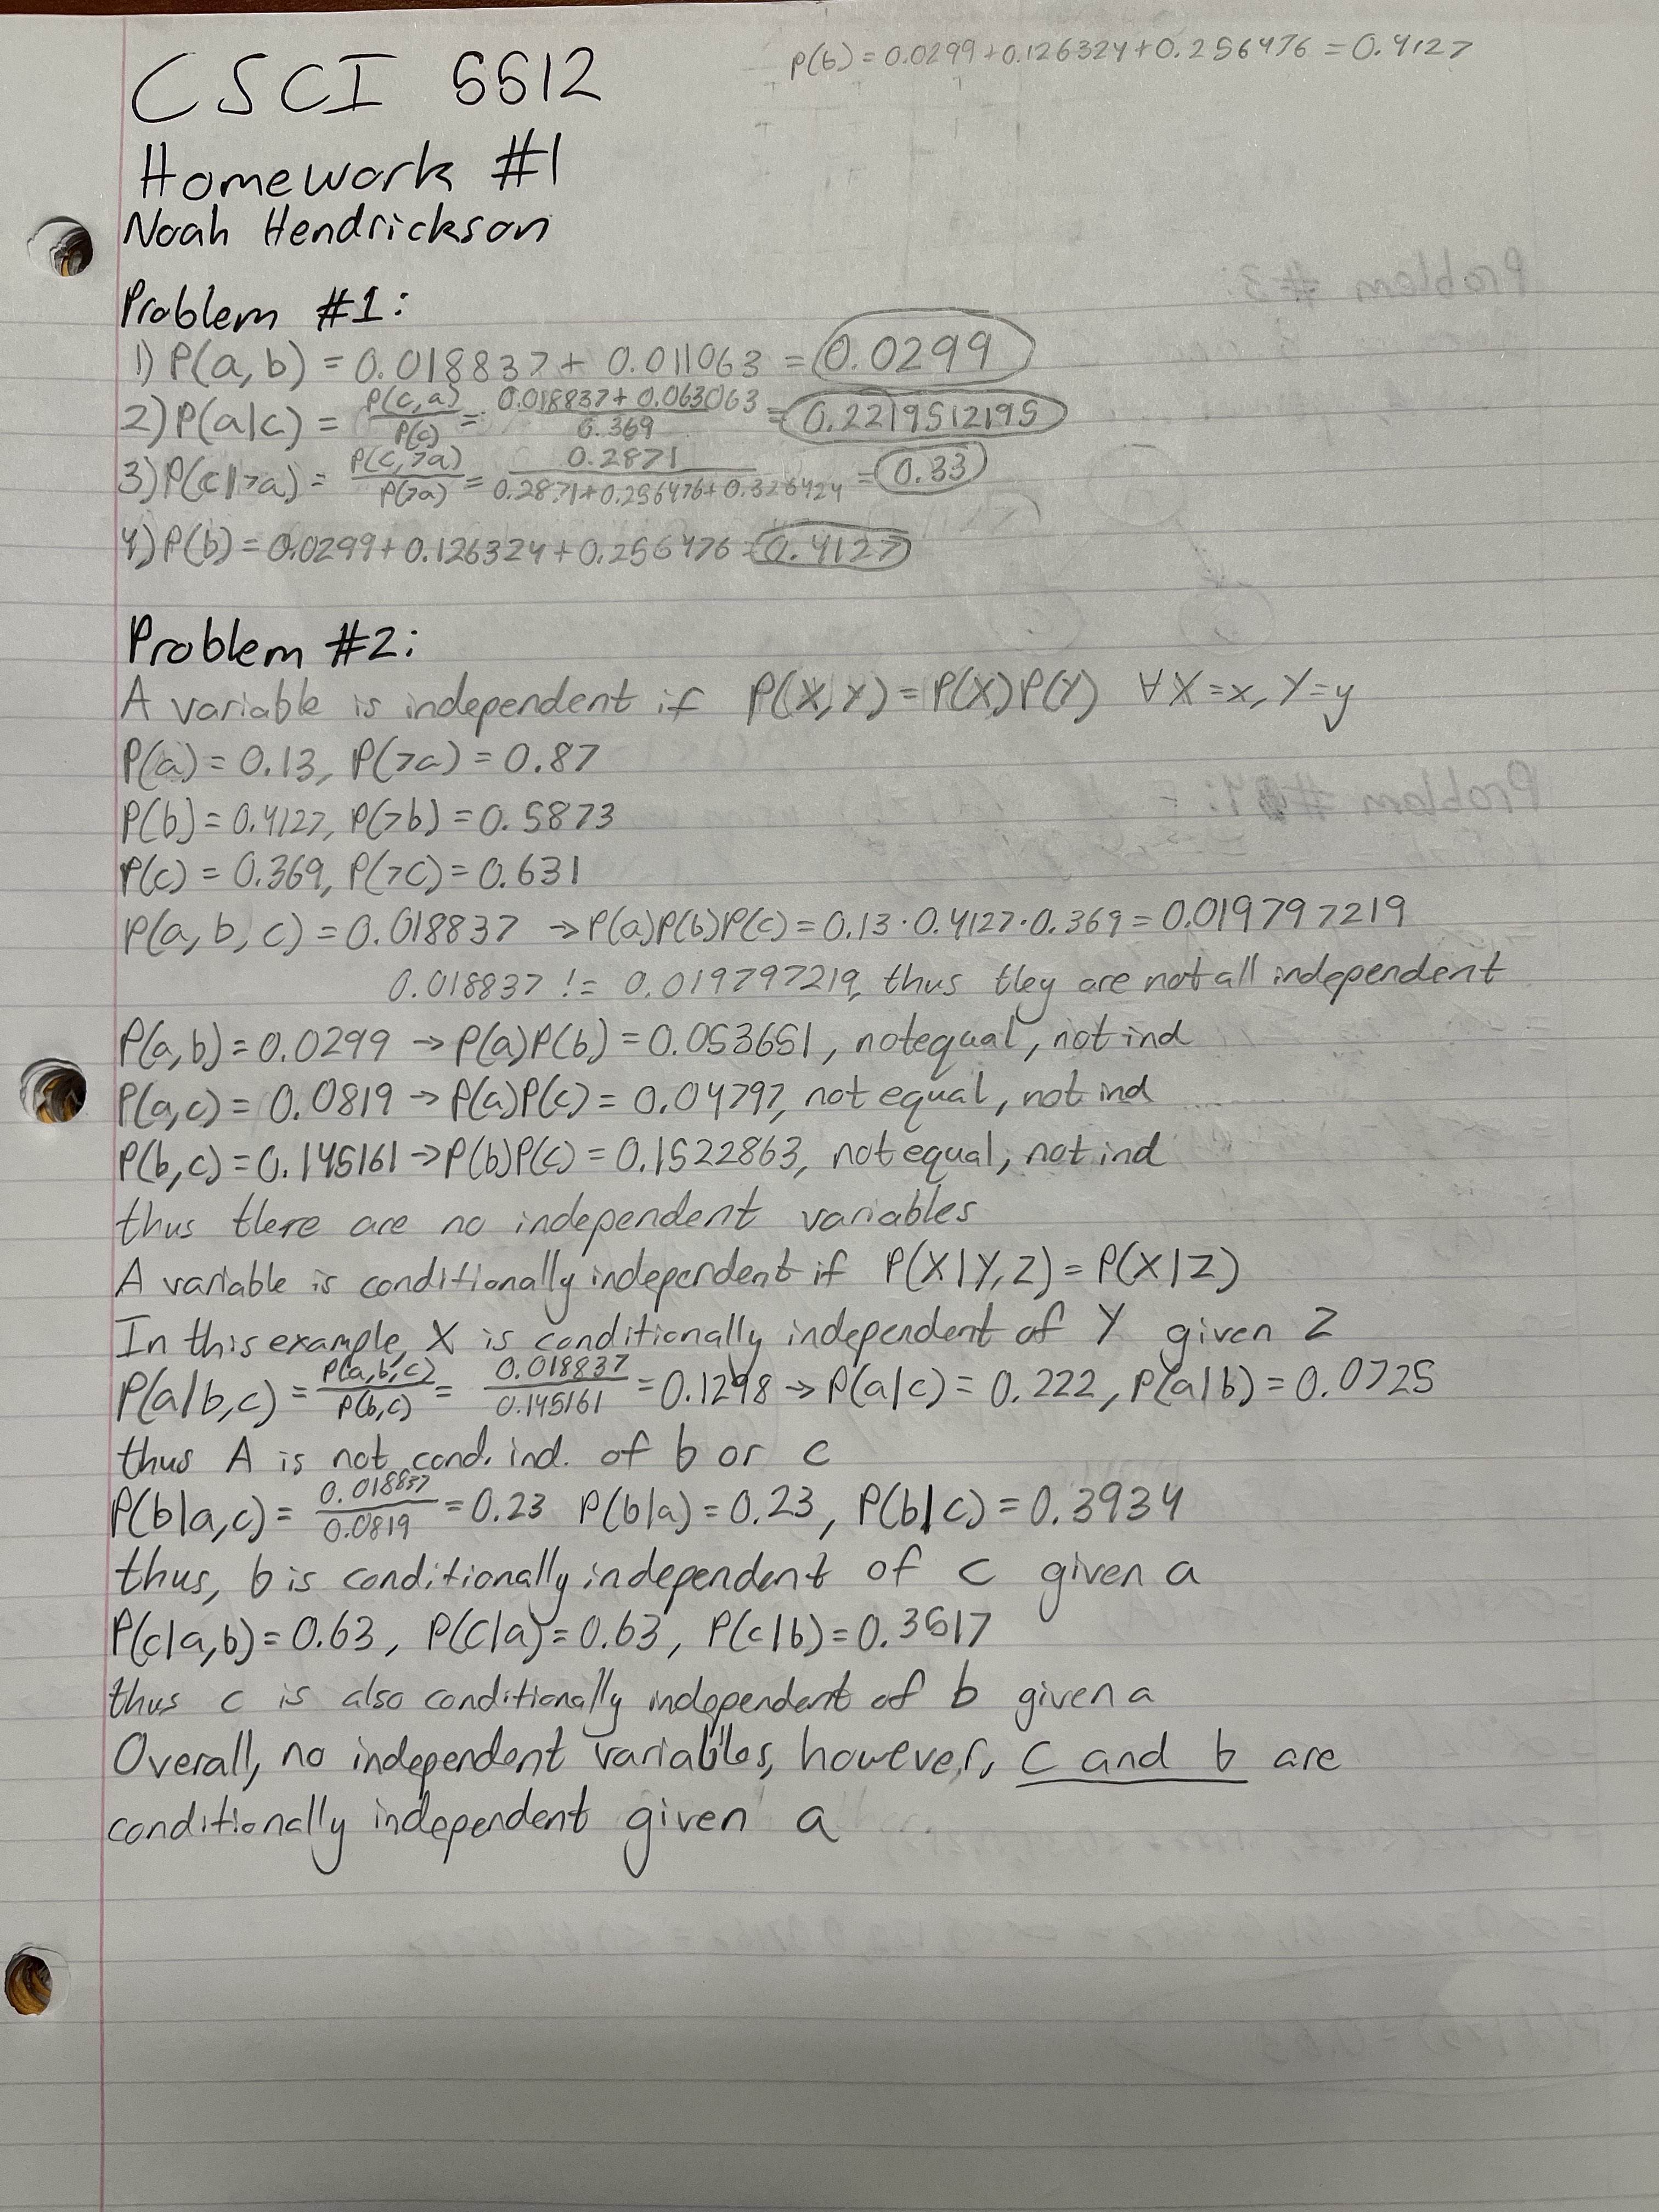 P(b) = 0.0299 + 0.126324 + 0.256476 = 0.4127
CSCI 5512
Homework #1
Noah Hendrickson
Problem #1:
1) P(a, b) = 0.018837 + 0.011063 = 0.0299
2) P(a|c) = P(c,a)/P(c) = 0.018837 + 0.063063/0.369 = 0.2219512195
3) P(c|¬a) = P(c,¬a)/P(¬a) = 0.2871/0.2871+0.256476+0.326424 = 0.33
4) P(b) = 0.0299 + 0.126324 + 0.256476 = 0.4127
Problem #2:
A variable is independent if P(X, Y) = P(X)P(Y) ∀X=x, Y=y
P(a) = 0.13, P(¬a) = 0.87
P(b) = 0.4127, P(¬b) = 0.5873
P(c) = 0.369, P(¬c) = 0.631
P(a, b, c) = 0.018837 → P(a)P(b)P(c) = 0.13 · 0.4127 · 0.369 = 0.019797219
0.018837 != 0.019797219, thus they are not all independent
P(a,b) = 0.0299 → P(a)P(b) = 0.053651, not equal, not ind
P(a,c) = 0.0819 → P(a)P(c) = 0.04797, not equal, not ind
P(b,c) = 0.145161 → P(b)P(c) = 0.1522863, not equal, not ind
thus there are no independent variables
A variable is conditionally independent if P(X|Y,Z) = P(X|Z)
In this example, X is conditionally independent of Y given Z
P(a|b,c) = P(a,b,c)/P(b,c) = 0.018837/0.145161 = 0.1298 → P(a|c) = 0.222, P(a|b) = 0.0725
thus A is not cond. ind. of b or c
P(b|a,c) = 0.018837/0.0819 = 0.23 P(b|a) = 0.23, P(b|c) = 0.3934
thus, b is conditionally independent of c given a
P(c|a,b) = 0.63, P(c|a) = 0.63, P(c|b) = 0.3517
thus c is also conditionally independent of b given a
Overall, no independent variables, however, c and b are
conditionally independent given a